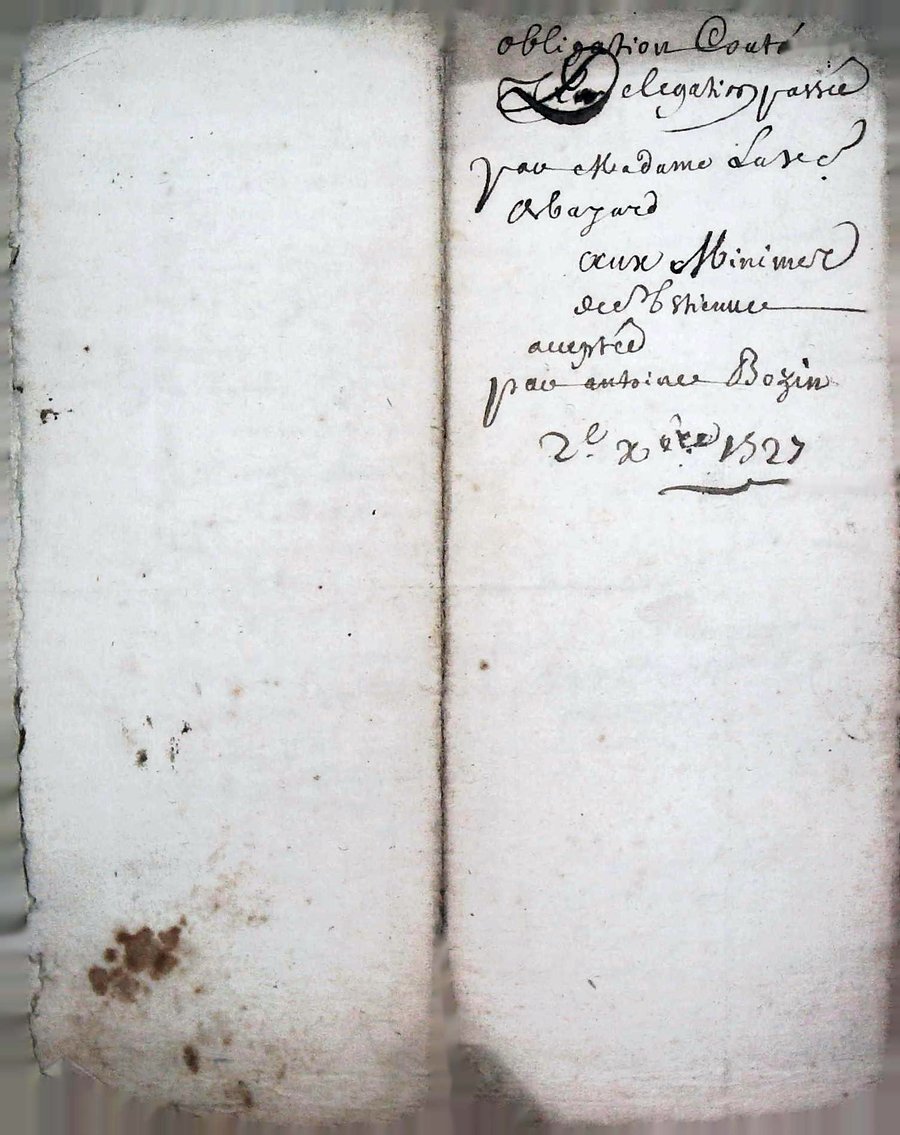 obligation
Delegation passée
par Madame
aux Minimes
de St Etienne
acceptée
par antoine Bozin
2e Xbre 1727